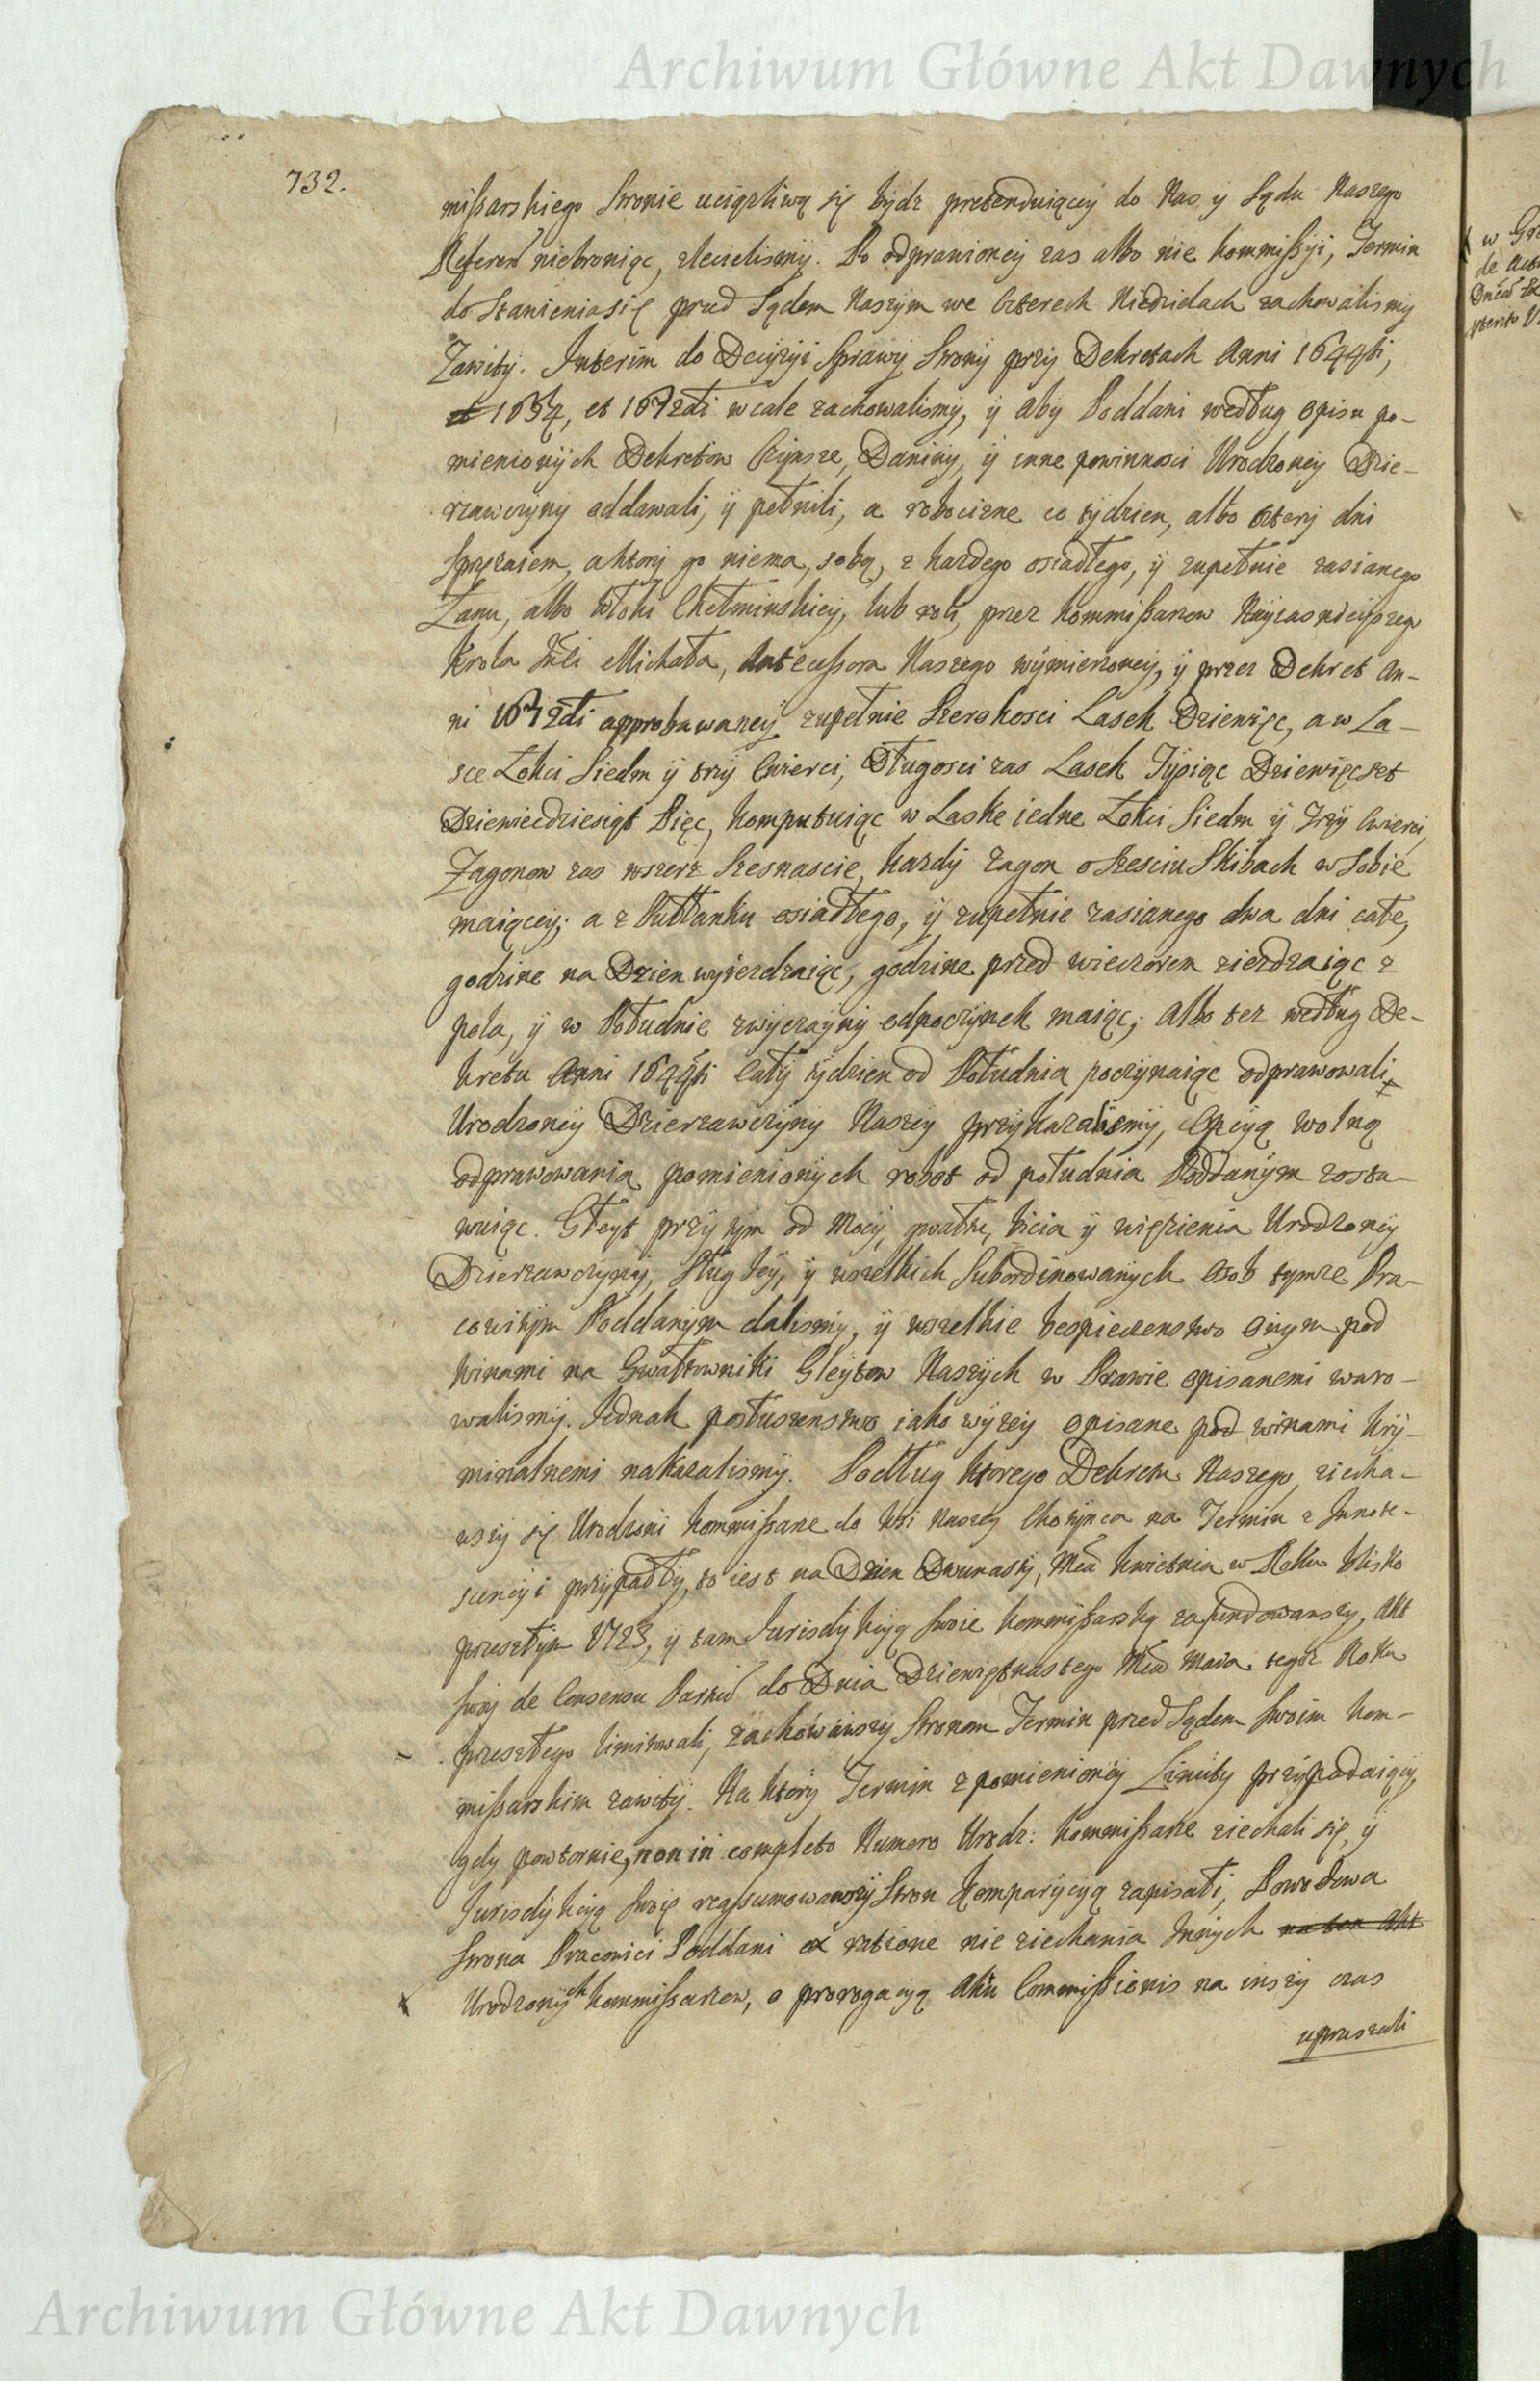 Archiwum Główne Akt Dawnych
732.
mißarskiego Stronie uciązliwą się bydz pretenduiącey do Nas y Sądu Naszego
Referen̄ niebroniąc, zlecielismy. Po odprawioney zas albo nie Kommißyi, Termin
do Stanieniasię przed Sądem Naszym we Czterech Niedzielach zachowalismy
Zawity. Interim do Decyzyi Sprawy Strony przy Dekretach Anni 1644ti,
1654, et 1672di wcale zachowalismy, y aby Poddani według opisu po-
mienionych Dekretow Czynsze, Daniny, y inne powinnosci Urodzoney Dzie-
rzawczyny oddawali, y pełnili, a robocizne co tydzien, albo cztery dni
Sprzezaiem, aktory go niema, sobą, z kazdego osiadłego, y zupełnie zasianego
Łanu, albo Włoki Chełminskiey, lub roli, przez Kommißarzow Nayiasnieyszego
Krola Jm̄ci Michała, Anteceßora Naszego wymierzoney, y przez Dekret An-
ni 1672di approbowaney zupełnie Szerokosci Lasek Dziewięc, aw La-
sce Łokci Siedm y trzy Cwierci, Długosci zas Lasek Tysiąc Dziewięcset
Dziewiecdziesiąt Pięc, komputuiąc w Laske iedne Łokci Siedm y Trzy Cwierci,
Zagonow zas wszerz Szesnascie, kazdy zagon o Szesciu Skibach w Sobie
maiącey; a z Pułłanku osiadłego, y zupełnie zasianego dwa dni całe,
godzine na Dzien wyiezdzaiąc, godzine przed wieczorem ziezdzaiąc z
pola, y w Południe zwyczayny odpoczynek maiąc; Albo tez według De-
kretu Anni 1644ti Cały tydzien od Południa poczynaiąc odprawowali
Urodzoney Dzierzawczyny Naszey przykazalismy, Opcyą wolną
odprawowania pomienionych robot od południa Poddanym zosta-
wuiąc. Gleyt przytym od Mocy, gwałtu, bicia y więzienia Urodzoney
Dzierzawczyny, Sług Jey, y wszelkich Subordinowanych Osob tymze Pra-
cowitym Poddanym dalismy, y wszelkie bespieczenstwo onym pod
Winami na Gwałtowniki Gleytow Naszych w Prawie opisanemi waro-
walismy. Jednak posłuszenstwo iako wyzey opisane pod winami kry-
minalnemi nakazalismy. Podług ktorego Dekretu Naszego, ziecha-
wszy się Urodzeni Kommißarze do Wsi Naszey Chotynca na Termin z Innote-
scencyi przypadły, to iest na Dzien Dwunasty, Mca Kwietnia w Roku blisko
przeszłym 1723, y tam Jurisdykcyą Swoie Kommißarską zafundowawszy, Akt
swoy de Consensu Partiū do Dnia Dziewiętnastego Mca Maia tegoz Roku
przeszłego limitowali, zachowawszy Stronom Termin przed Sądem Swoim Kom-
mißarskim zawity. Na ktory Termin z pomienioney Limity przypadaiący,
gdy powtornie, non in completo Numero Urodz: Kommißarze ziechali się, y
Jurisdykcyą Swoię reaßumowawszy Stron Komparycyą zapisali, Powodowa
Strona Pracowici Poddani ex ratione nie ziechania Innych na ten Akt
Urodzonych Kommißarzow, o prorogacyą Aktu Commißionis na inszy czas
upraszali
w
de
Archiwum Główne Akt Dawnych